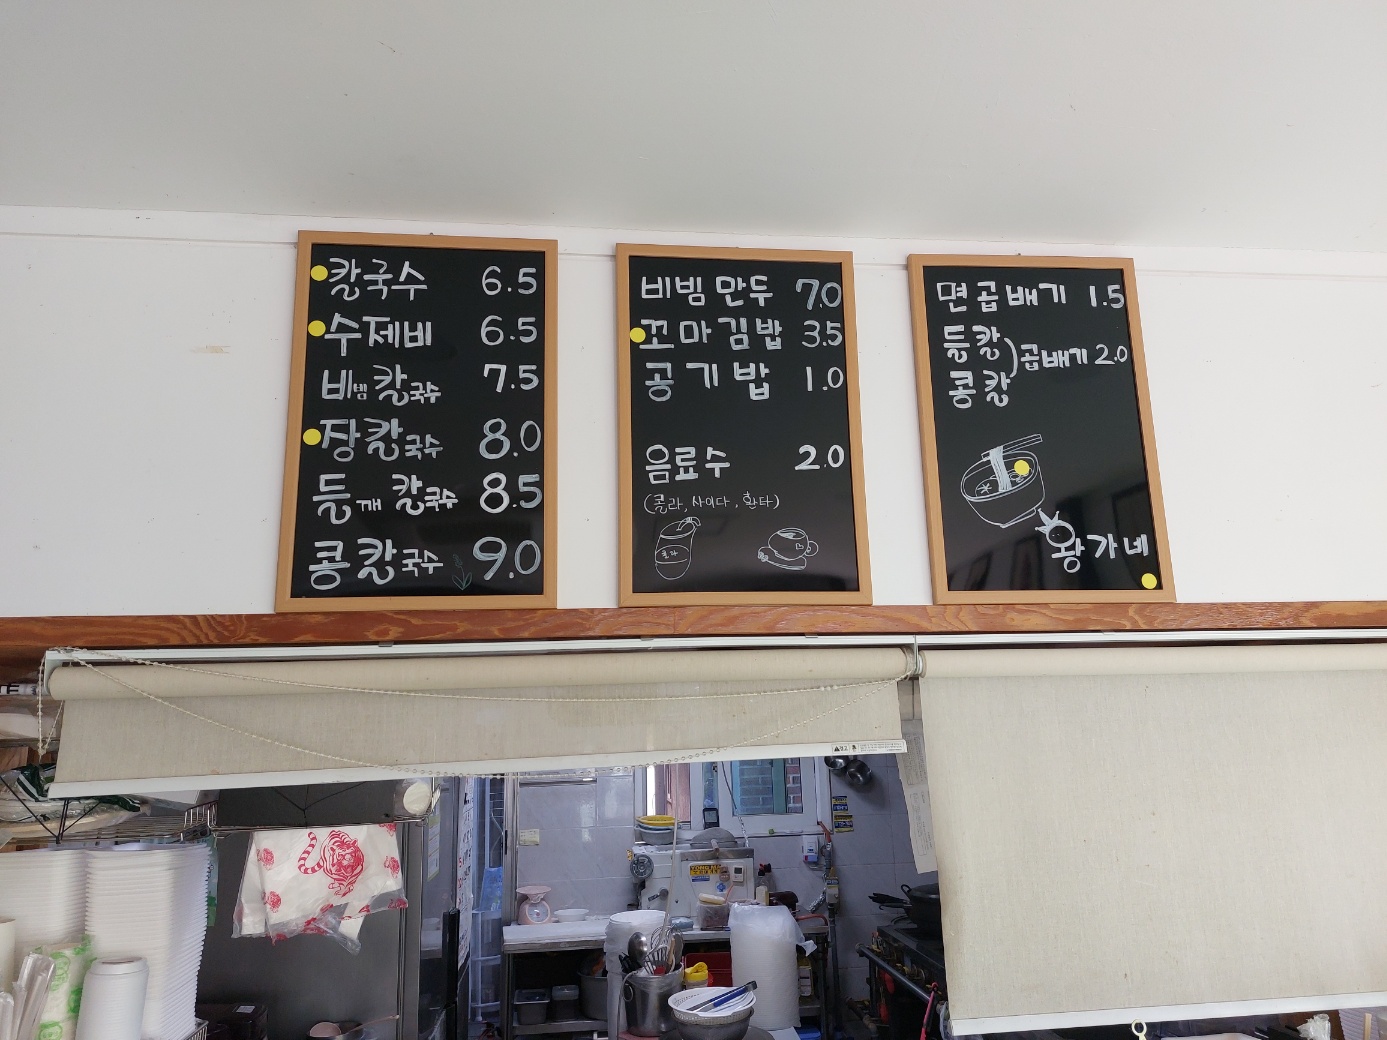 칼국수 6.5
수제비 6.5
비빔칼국수 7.5
장칼국수 8.0
들깨칼국수 8.5
콩칼국수 9.0
비빔만두 7.0
꼬마김밥 3.5
공기밥 1.0
음료수 2.0
(콜라, 사이다, 환타)
콜라
면곱배기 1.5
들칼
콩칼
)곱배기 2.0
왕가네